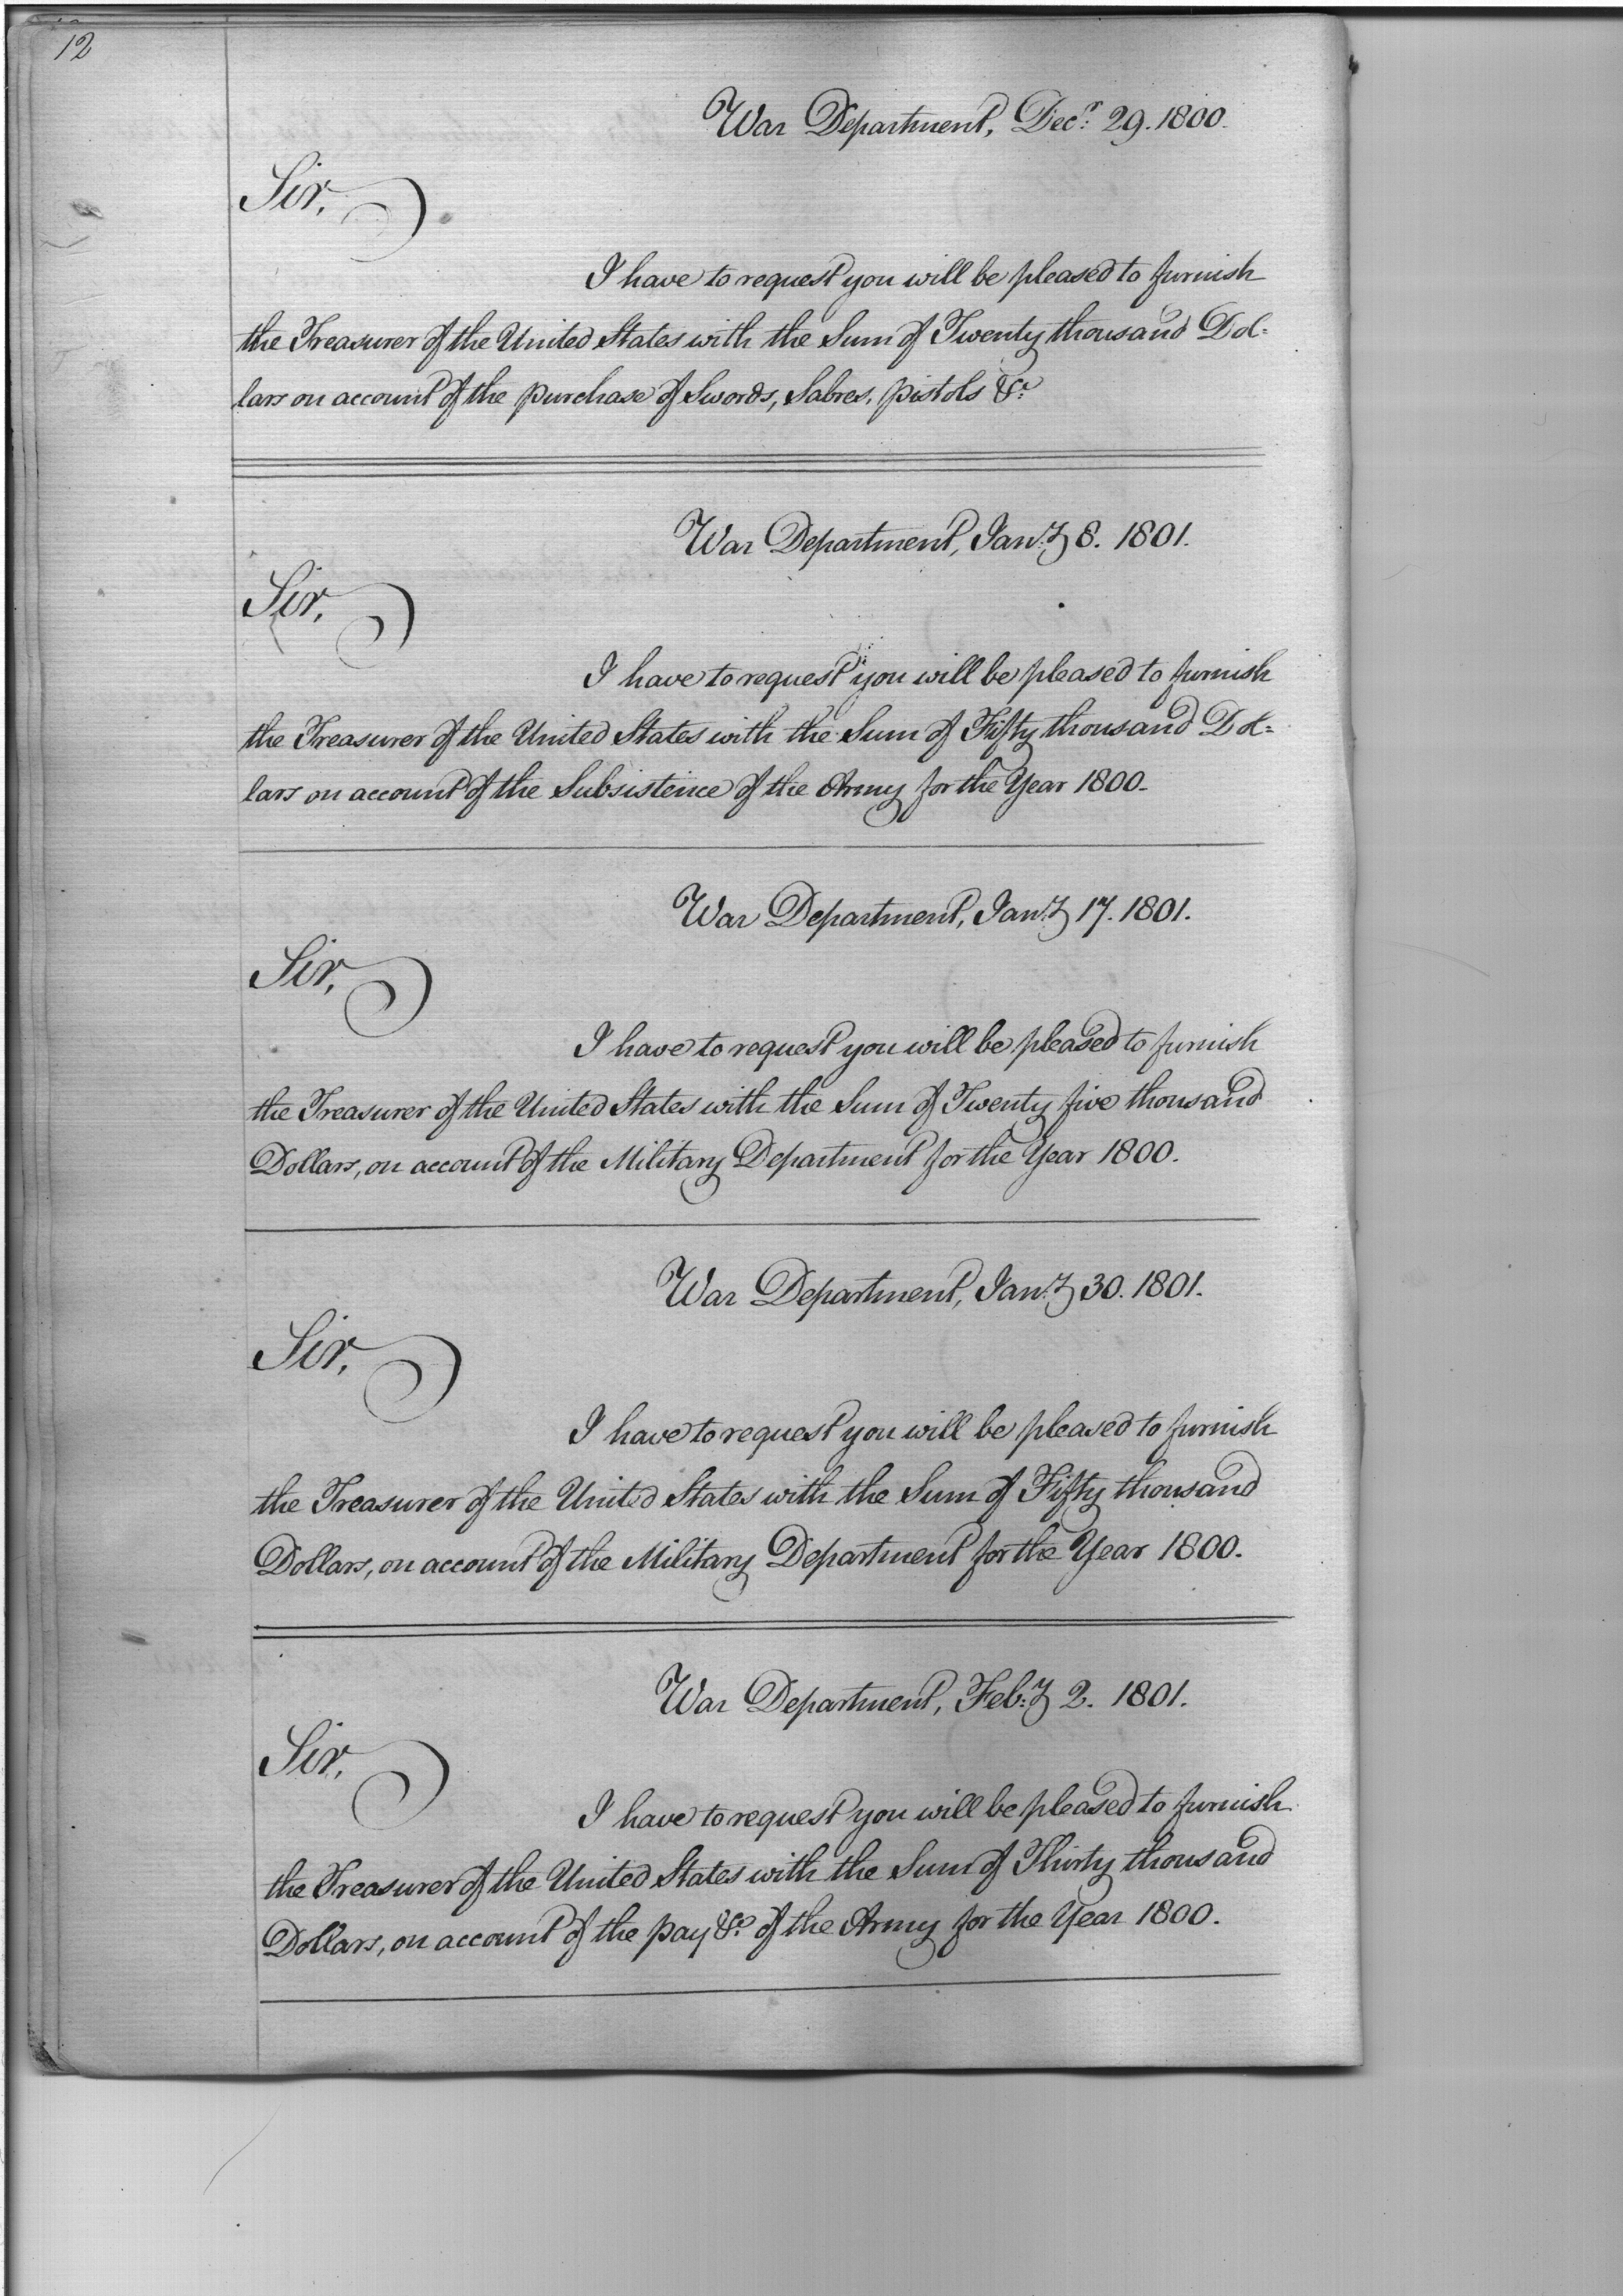 12
War Department, Decr. 29. 1800.
Sir,
I have to request you will be pleased to furnish
the Treasurer of the United States with the Sum of Twenty thousand Dol=
lars on account of the purchase of Swords, Sabres, pistols &c.
War Department, Jany. 8. 1801.
Sir,
I have to request you will be pleased to furnish
the Treasurer of the United States with the Sum of Fifty thousand Dol=
lars on account of the Subsistence of the Army for the Year 1800.
War Department, Jany. 17. 1801.
Sir,
I have to request you will be pleased to furnish
the Treasurer of the United States with the Sum of Twenty five thousand
Dollars, on account of the Military Department for the Year 1800.
War Department, Jany. 30. 1801.
Sir,
I have to request you will be pleased to furnish
the Treasurer of the United States with the Sum of Fifty thousand
Dollars, on account of the Military Department for the Year 1800.
War Department, Feby. 2. 1801.
Sir,
I have to request you will be pleased to furnish
the Treasurer of the United States with the Sum of Thirty thousand
Dollars, on account of the pay &c. of the Army for the Year 1800.